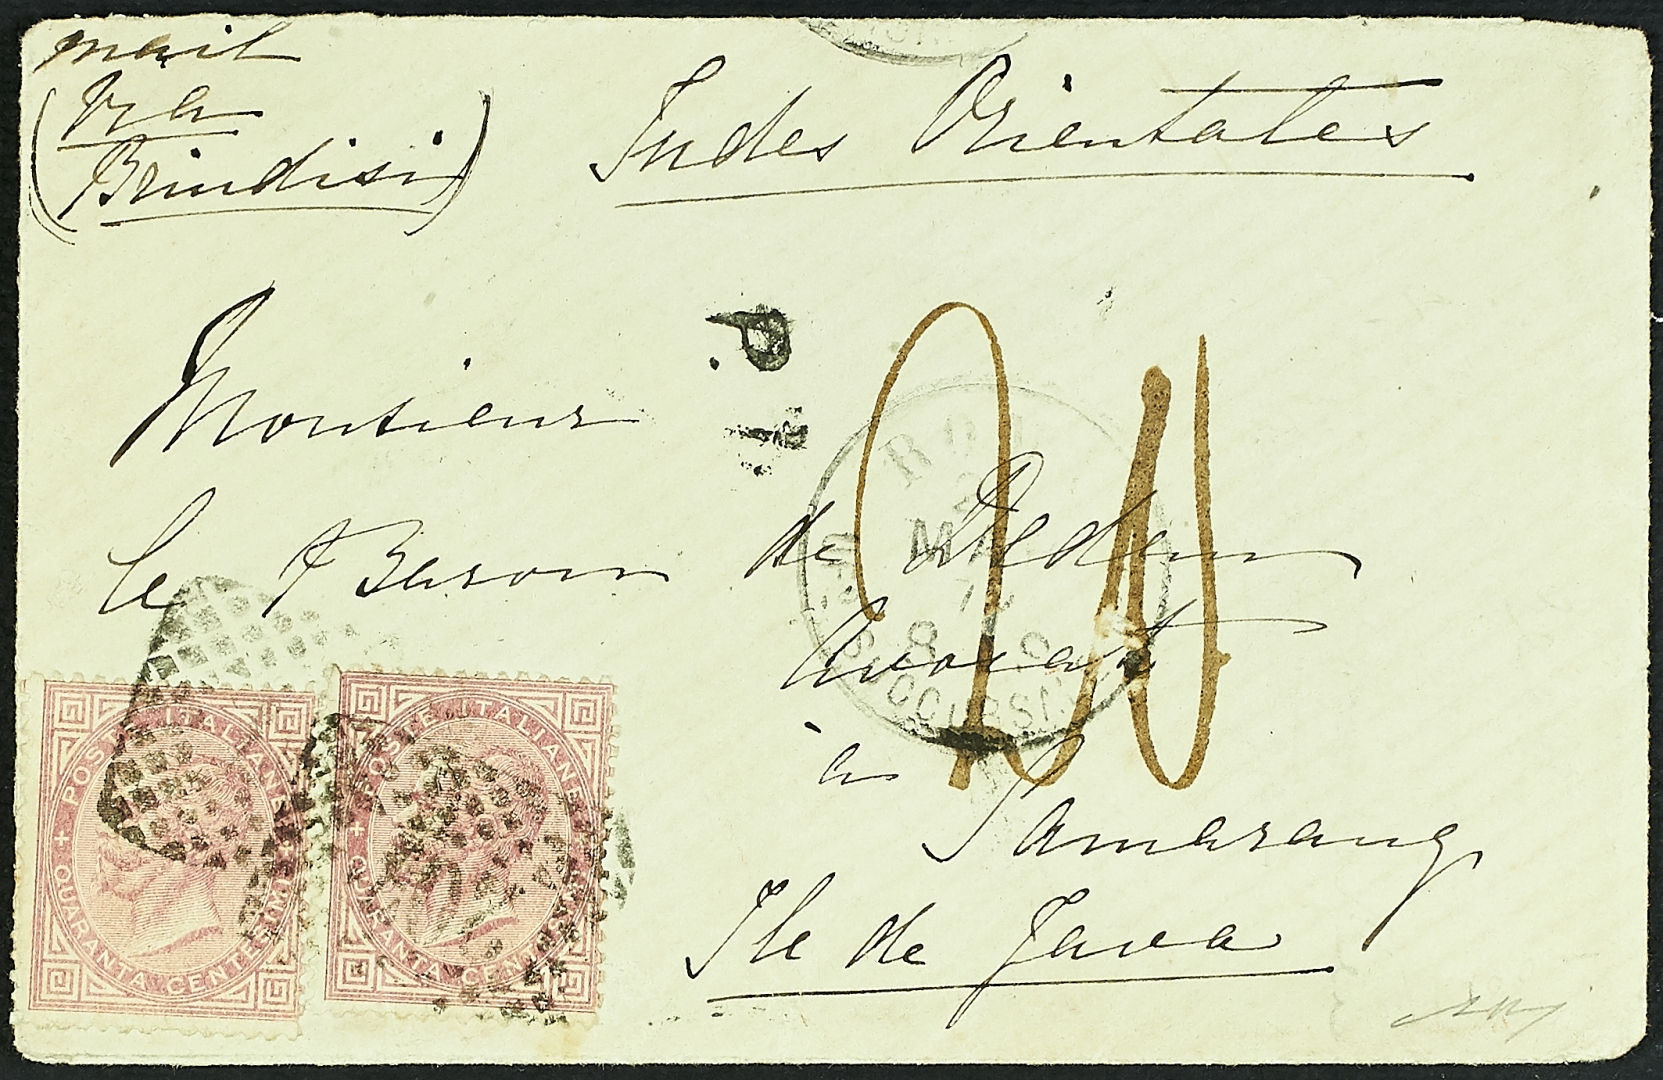 mail
(via
Brindisi)
Indes Orientales
Monsieur
le Baron de Dedem
Avocat
à Samarang
Ile de Java
P.
RO
MA
8
SUCCURS
POSTE ITALIANE
QUARANTA CENTESIMI
POSTE ITALIANE
QUARANTA CENTESIMI